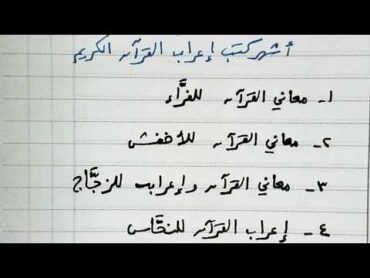 أشهر كتب إعراب القرآن الكريم
١- معاني القرآن للفرَّاء
٢- معاني القرآن للأخفش
٣- معاني القرآن وإعرابه للزجَّاج
٤- إعراب القرآن للنحَّاس